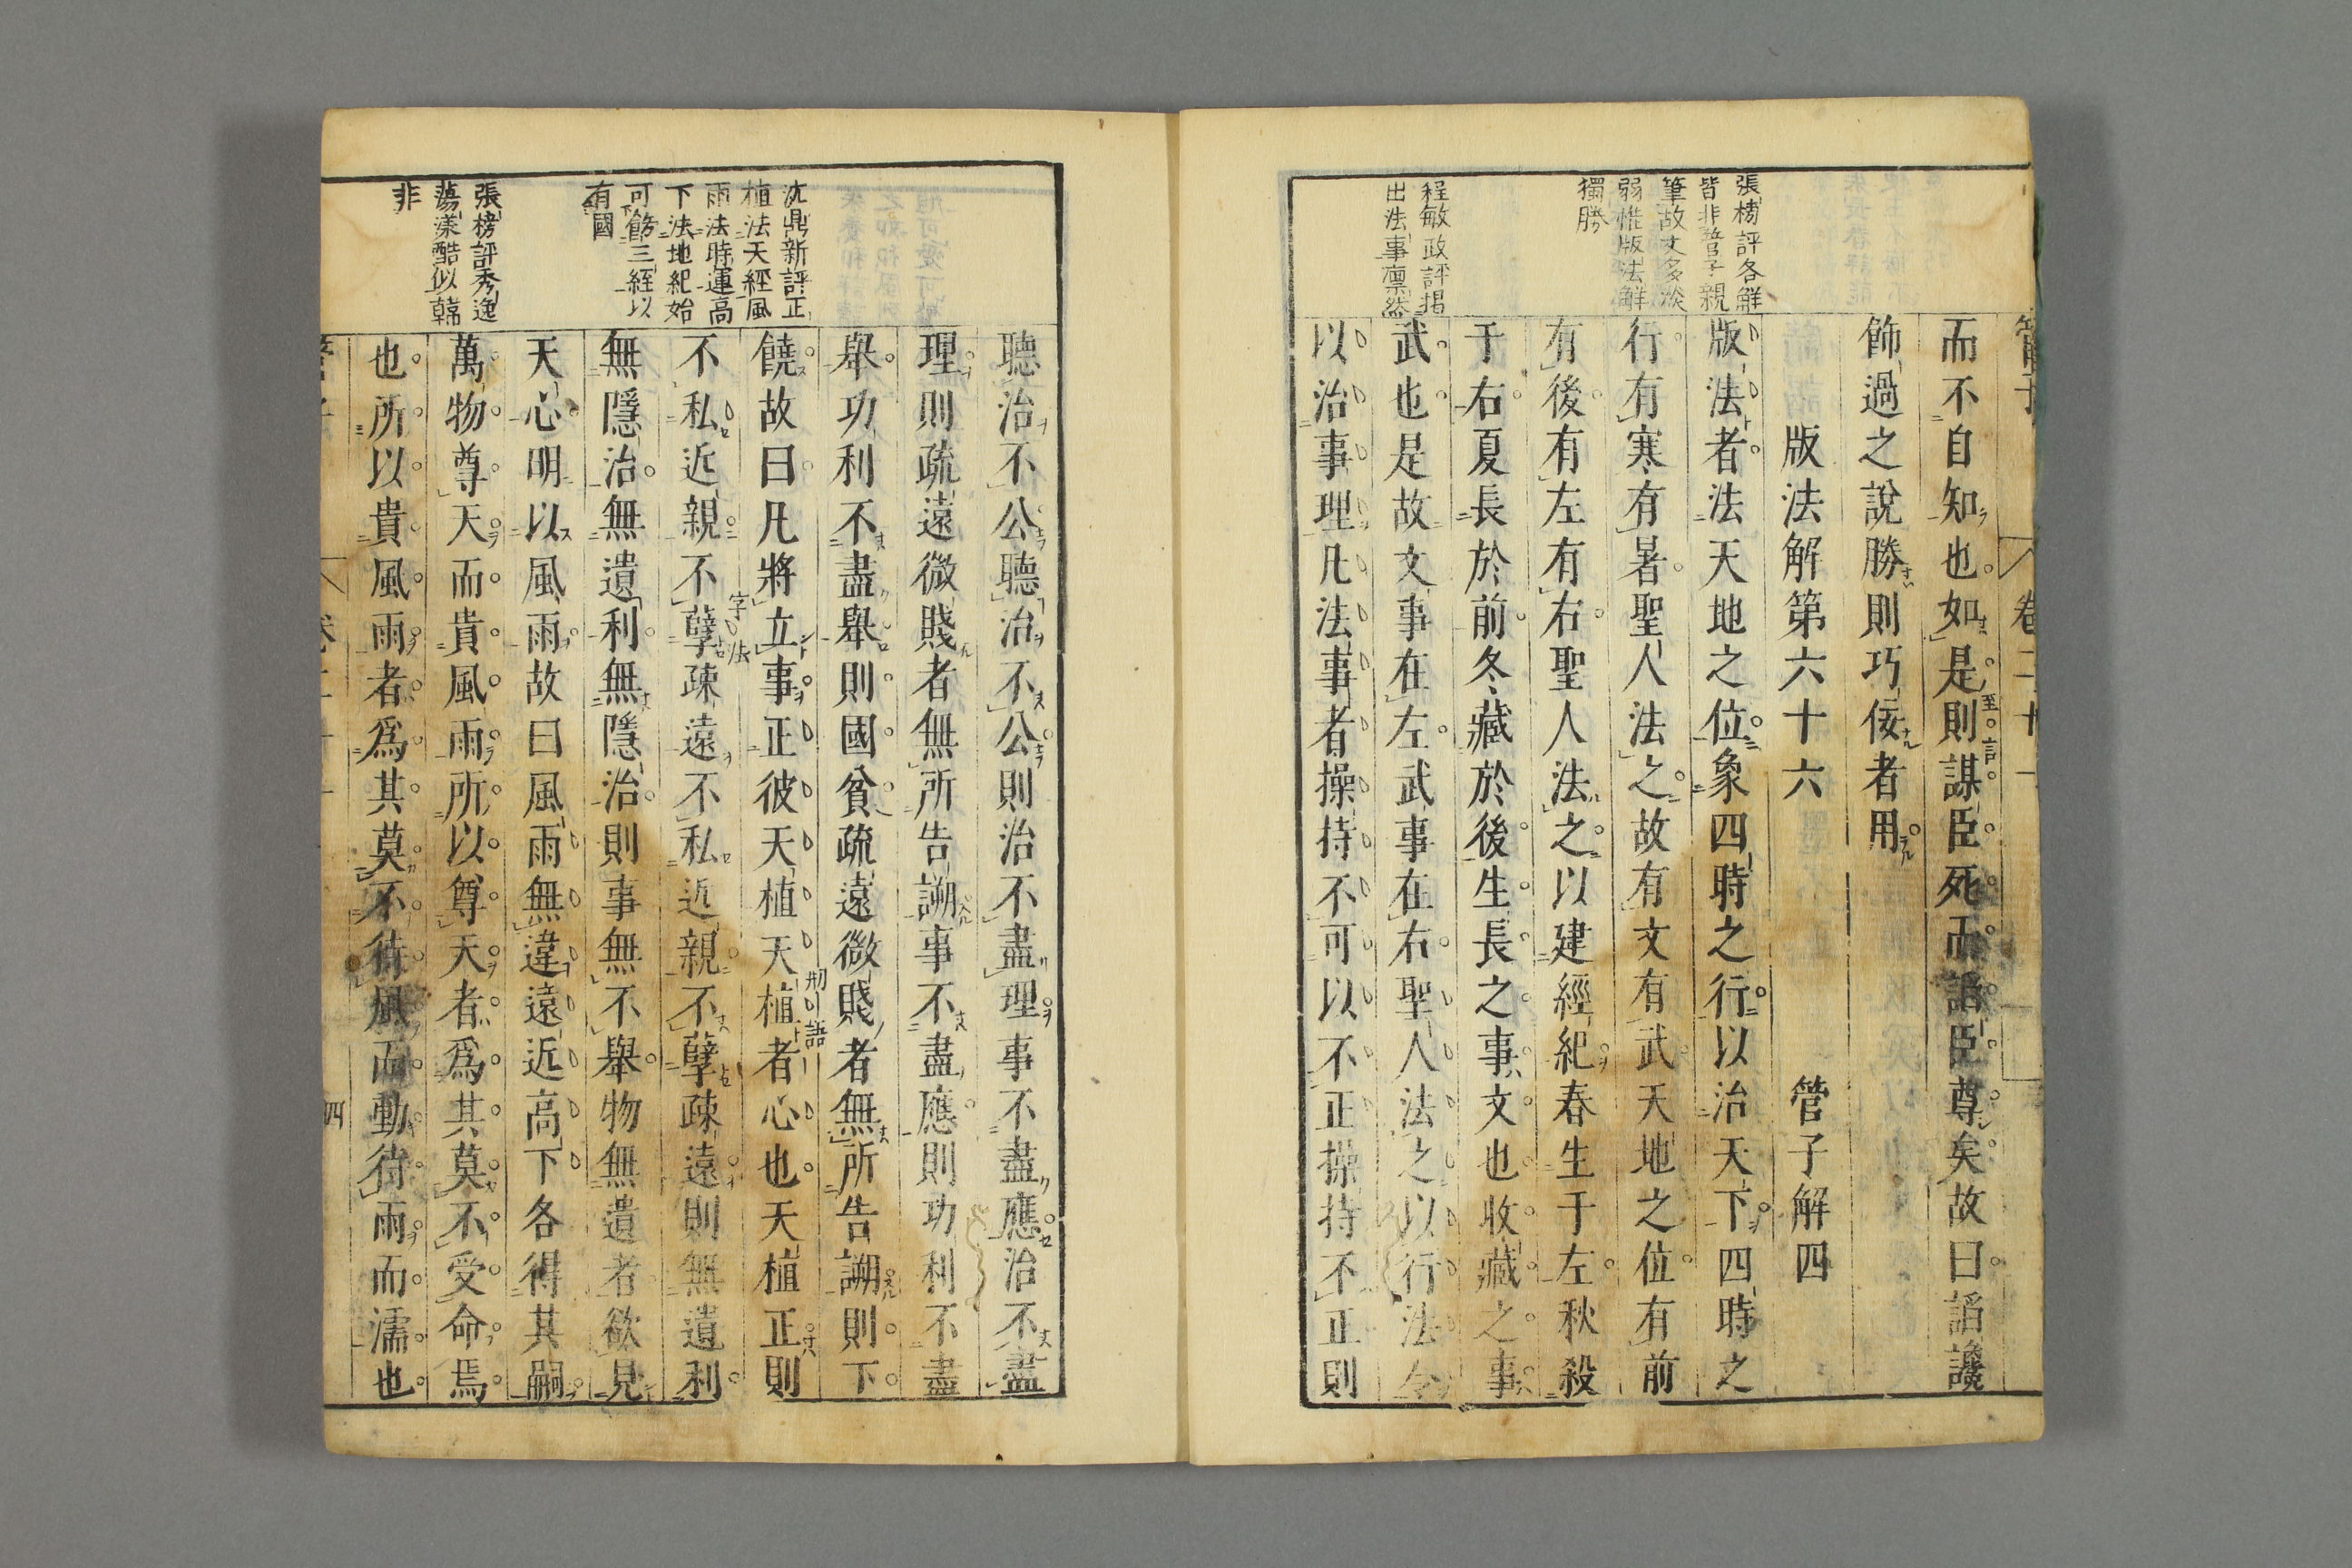 張榜評各鮮
皆非管子親
筆故文多淡
弱惟版法鮮
獨勝
程敏政評揭
出法事凛然
而不自知也如是則謀臣死而諂臣尊矣故曰諂讒
飾過之說勝則巧佞者用
版法解第六十六
管子解四
版法者法天地之位象四時之行以治天下四時之
行有寒有暑聖人法之故有文有武天地之位有前
有後有左有右聖人法之以建經紀春生于左秋殺
于右夏長於前冬藏於後生長之事文也收藏之事
武也是故文事在左武事在右聖人法之以行法令
以治事理凡法事者操持不可以不正操持不正則
沈鼎新評正
植法天經風
雨法時運高
下法地紀始
可飭三經以
有國
張榜評秀逸
蕩漾酷似韓
非
聽治不公聽治不公則治不盡理事不盡應治不盡
理則疏遠微賤者無所告謝事不盡應則功利不盡
舉功利不盡舉則國貧疏遠微賤者無所告謝則下
饒故曰凡將立事正彼天植天植者心也天植正則
不私近親不孽疎遠不私近親不孽疎遠則無遺利
字法
刑語
無隱治無遺利無隱治則事無不舉物無遺者欲見
天心明以風雨故曰風雨無違遠近高下各得其嗣
萬物尊天而貴風雨所以尊天者爲其莫不受命焉
也所以貴風雨者爲其莫不待風而動待雨而濡也
四